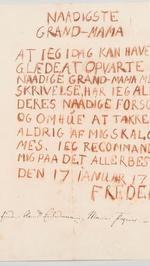 NAADIGSTE
GRAND-MAMA
AT IEG IDAG KAN HAVE
GLÆDE AT OPVARTE
NAADIGE GRAND-MAMA M
SKRIVELSE, HAR IEG AL
DERES NAADIGE FORSO
OG OMHUE AT TAKKE
ALDRIG AF MIG SKAL GO
MES. IEG RECOMMAND
MIG PAA DET ALLERBES
DEN 17 IANUAR 17
FREDE